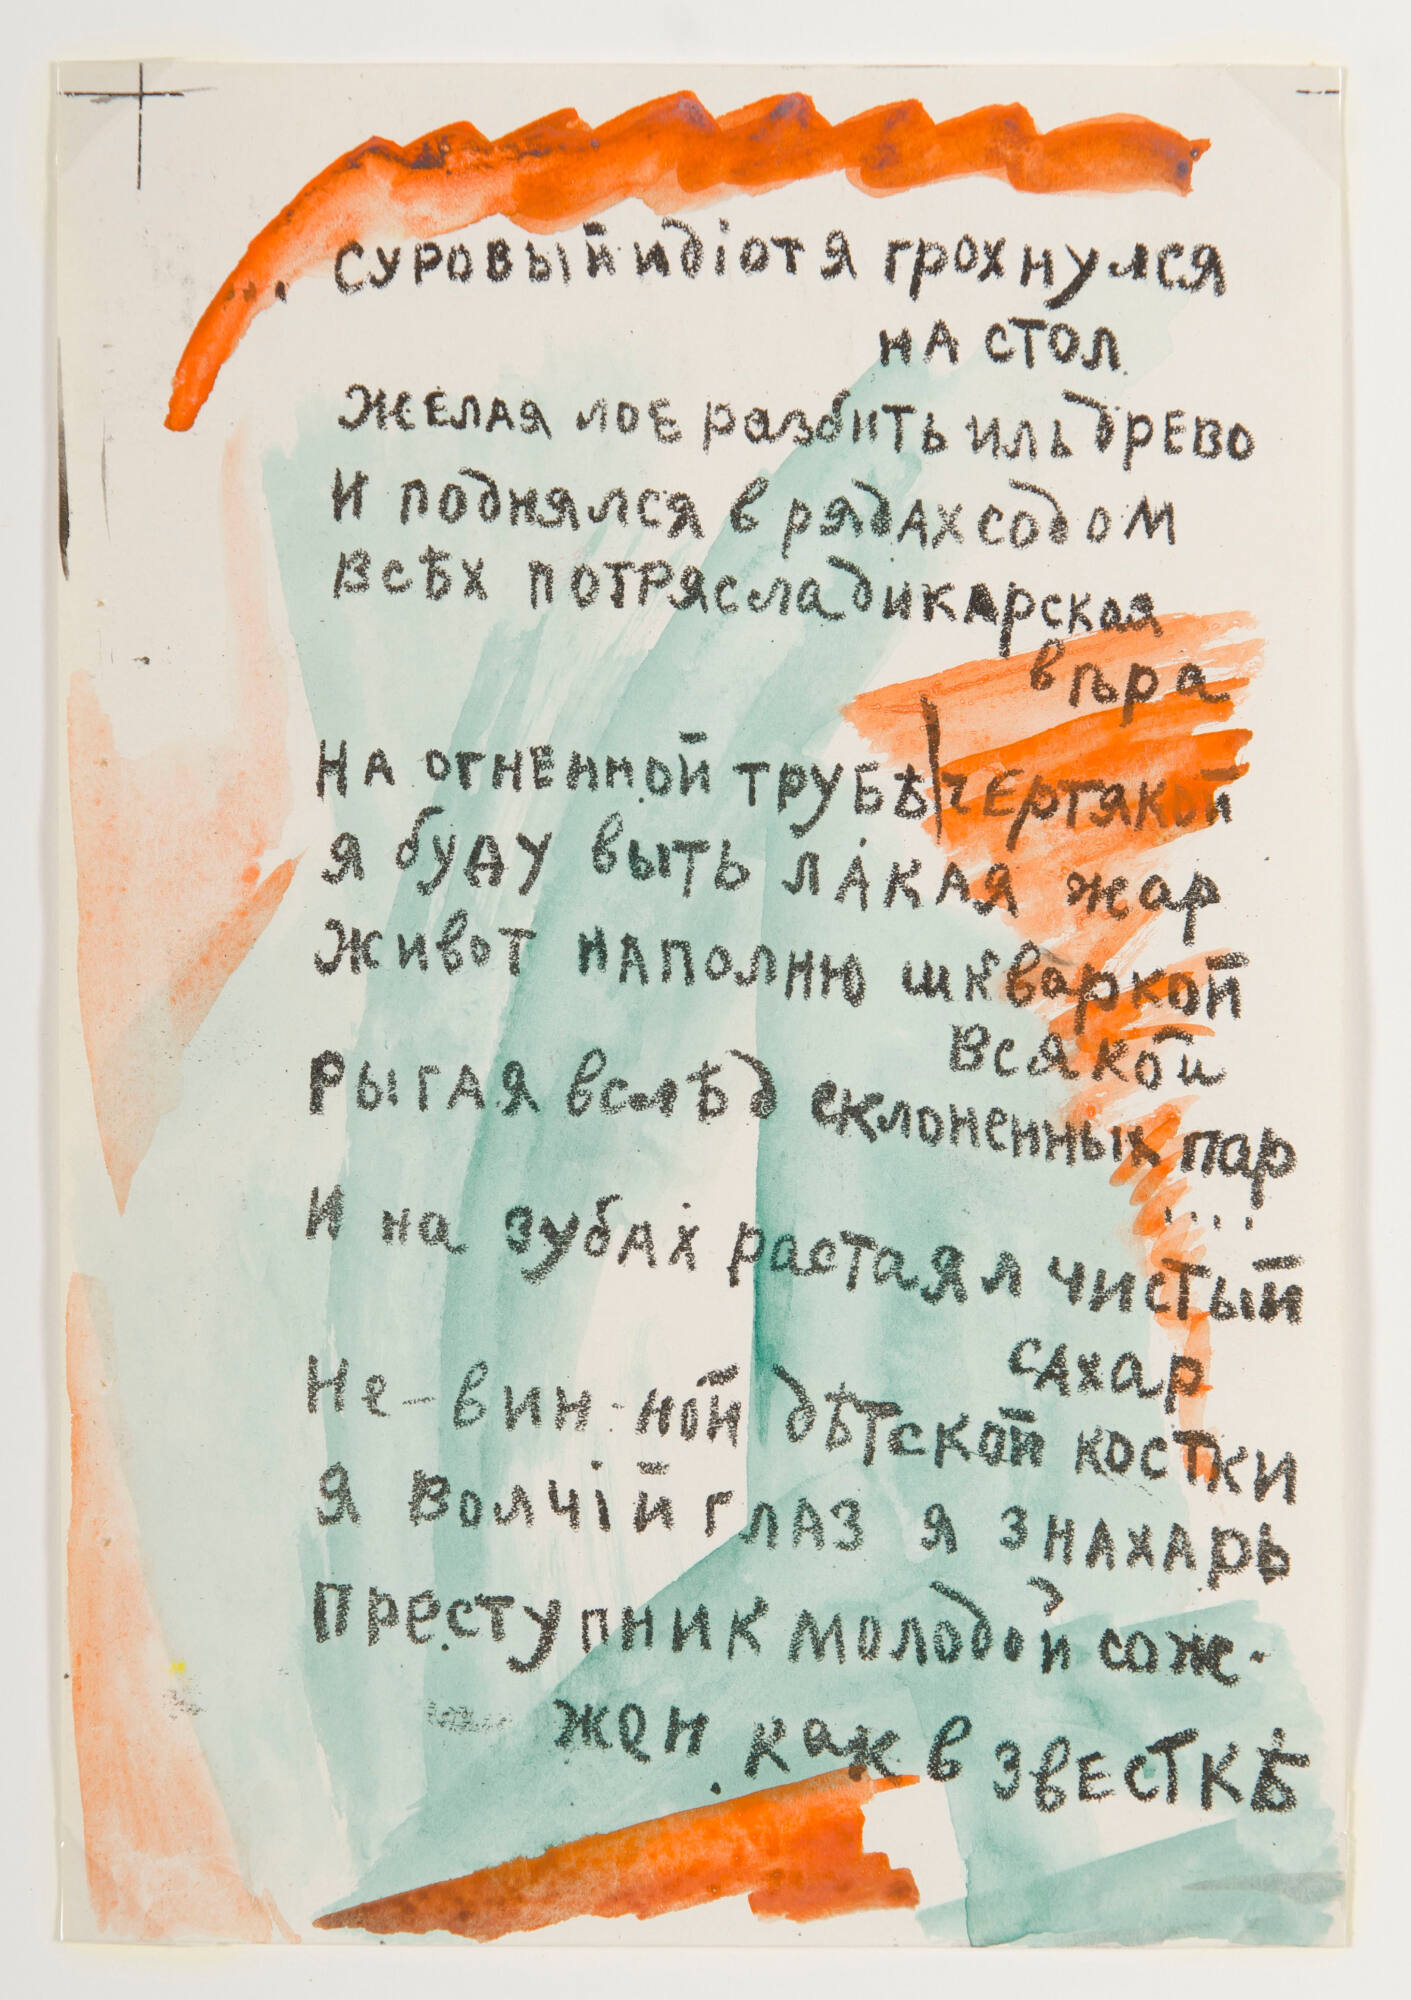 ... суровый идіот я грохнулся
на стол
желая лое разбить иль древо
и поднялся в рядах содом
всѣх потрясла дикарская
вѣра
На огненной трубѣ чертякой
я буду выть ла́кая жар
живот наполню шкваркой
всякой
рыгая вслѣд склоненных пар
....
И на зубах растаял чистый
сахар
Не-вин-ной дѣтской костки
я волчій глаз я знахарь
преступник молодой соже-
жен как в звесткѣ